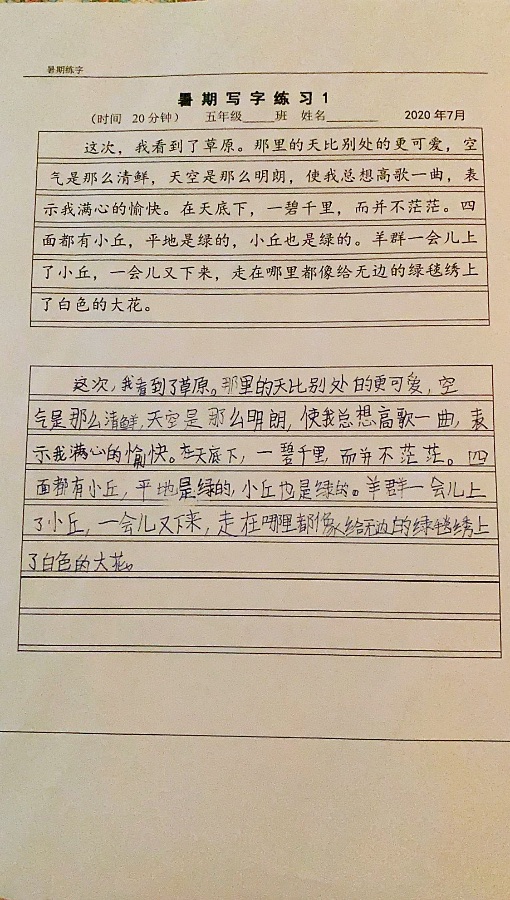 暑期练字
暑期写字练习1
（时间 20分钟） 五年级_____班 姓名________ 2020年7月
这次，我看到了草原。那里的天比别处的更可爱，空
气是那么清鲜，天空是那么明朗，使我总想高歌一曲，表
示我满心的愉快。在天底下，一碧千里，而并不茫茫。四
面都有小丘，平地是绿的，小丘也是绿的。羊群一会儿上
了小丘，一会儿又下来，走在哪里都像给无边的绿毯绣上
了白色的大花。
这次，我看到了草原。那里的天比别处的更可爱，空
气是那么清鲜，天空是那么明朗，使我总想高歌一曲，表
示我满心的愉快。在天底下，一碧千里，而并不茫茫。四
面都有小丘，平地是绿的，小丘也是绿的。羊群一会儿上
了小丘，一会儿又下来，走在哪里都像给无边的绿毯绣上
了白色的大花。